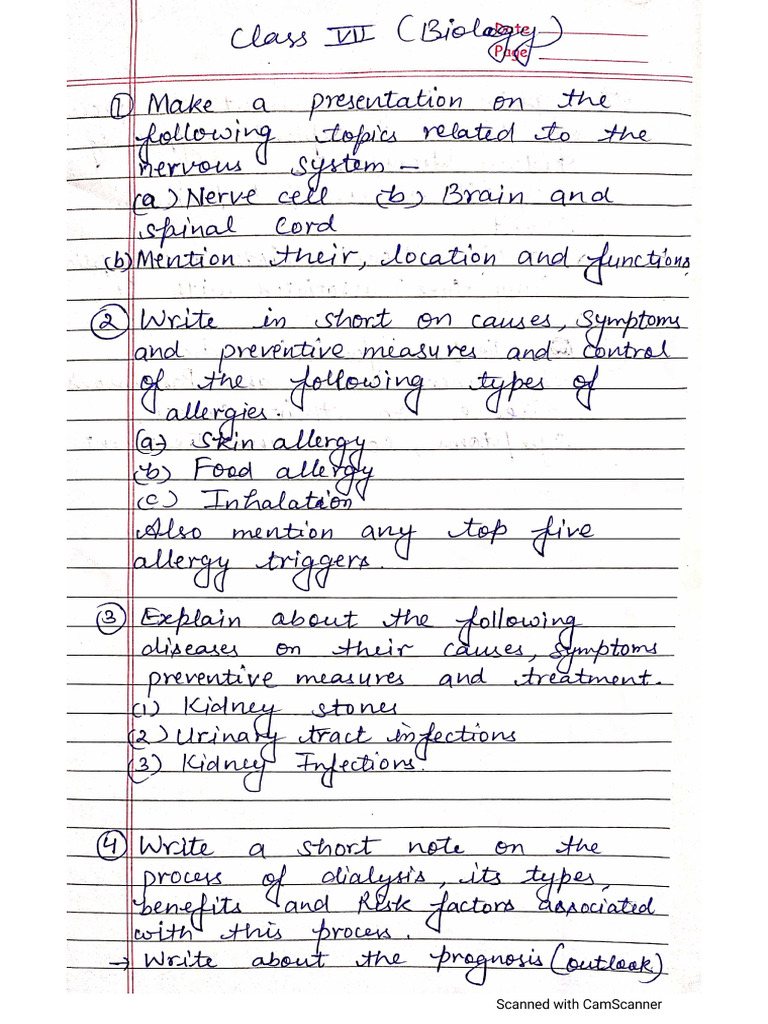 Class VII (Biology)
Date
Page
① Make a presentation on the
following topics related to the
nervous system –
(a) Nerve cell (b) Brain and
spinal Cord
(b) Mention their, location and functions
② Write in short on causes, Symptoms
and preventive measures and control
of the following types of
allergies.
(a) Skin allergy
(b) Food allergy
(c) Inhalation
Also mention any top five
allergy triggers.
③ Explain about the following
diseases on their causes, symptoms
preventive measures and treatment.
(1) Kidney stones
(2) Urinary tract infections
(3) Kidney Infections.
④ Write a short note on the
process of dialysis, its types,
benefits and Risk factors associated
with this process.
→ Write about the prognosis (outlook)
Scanned with CamScanner